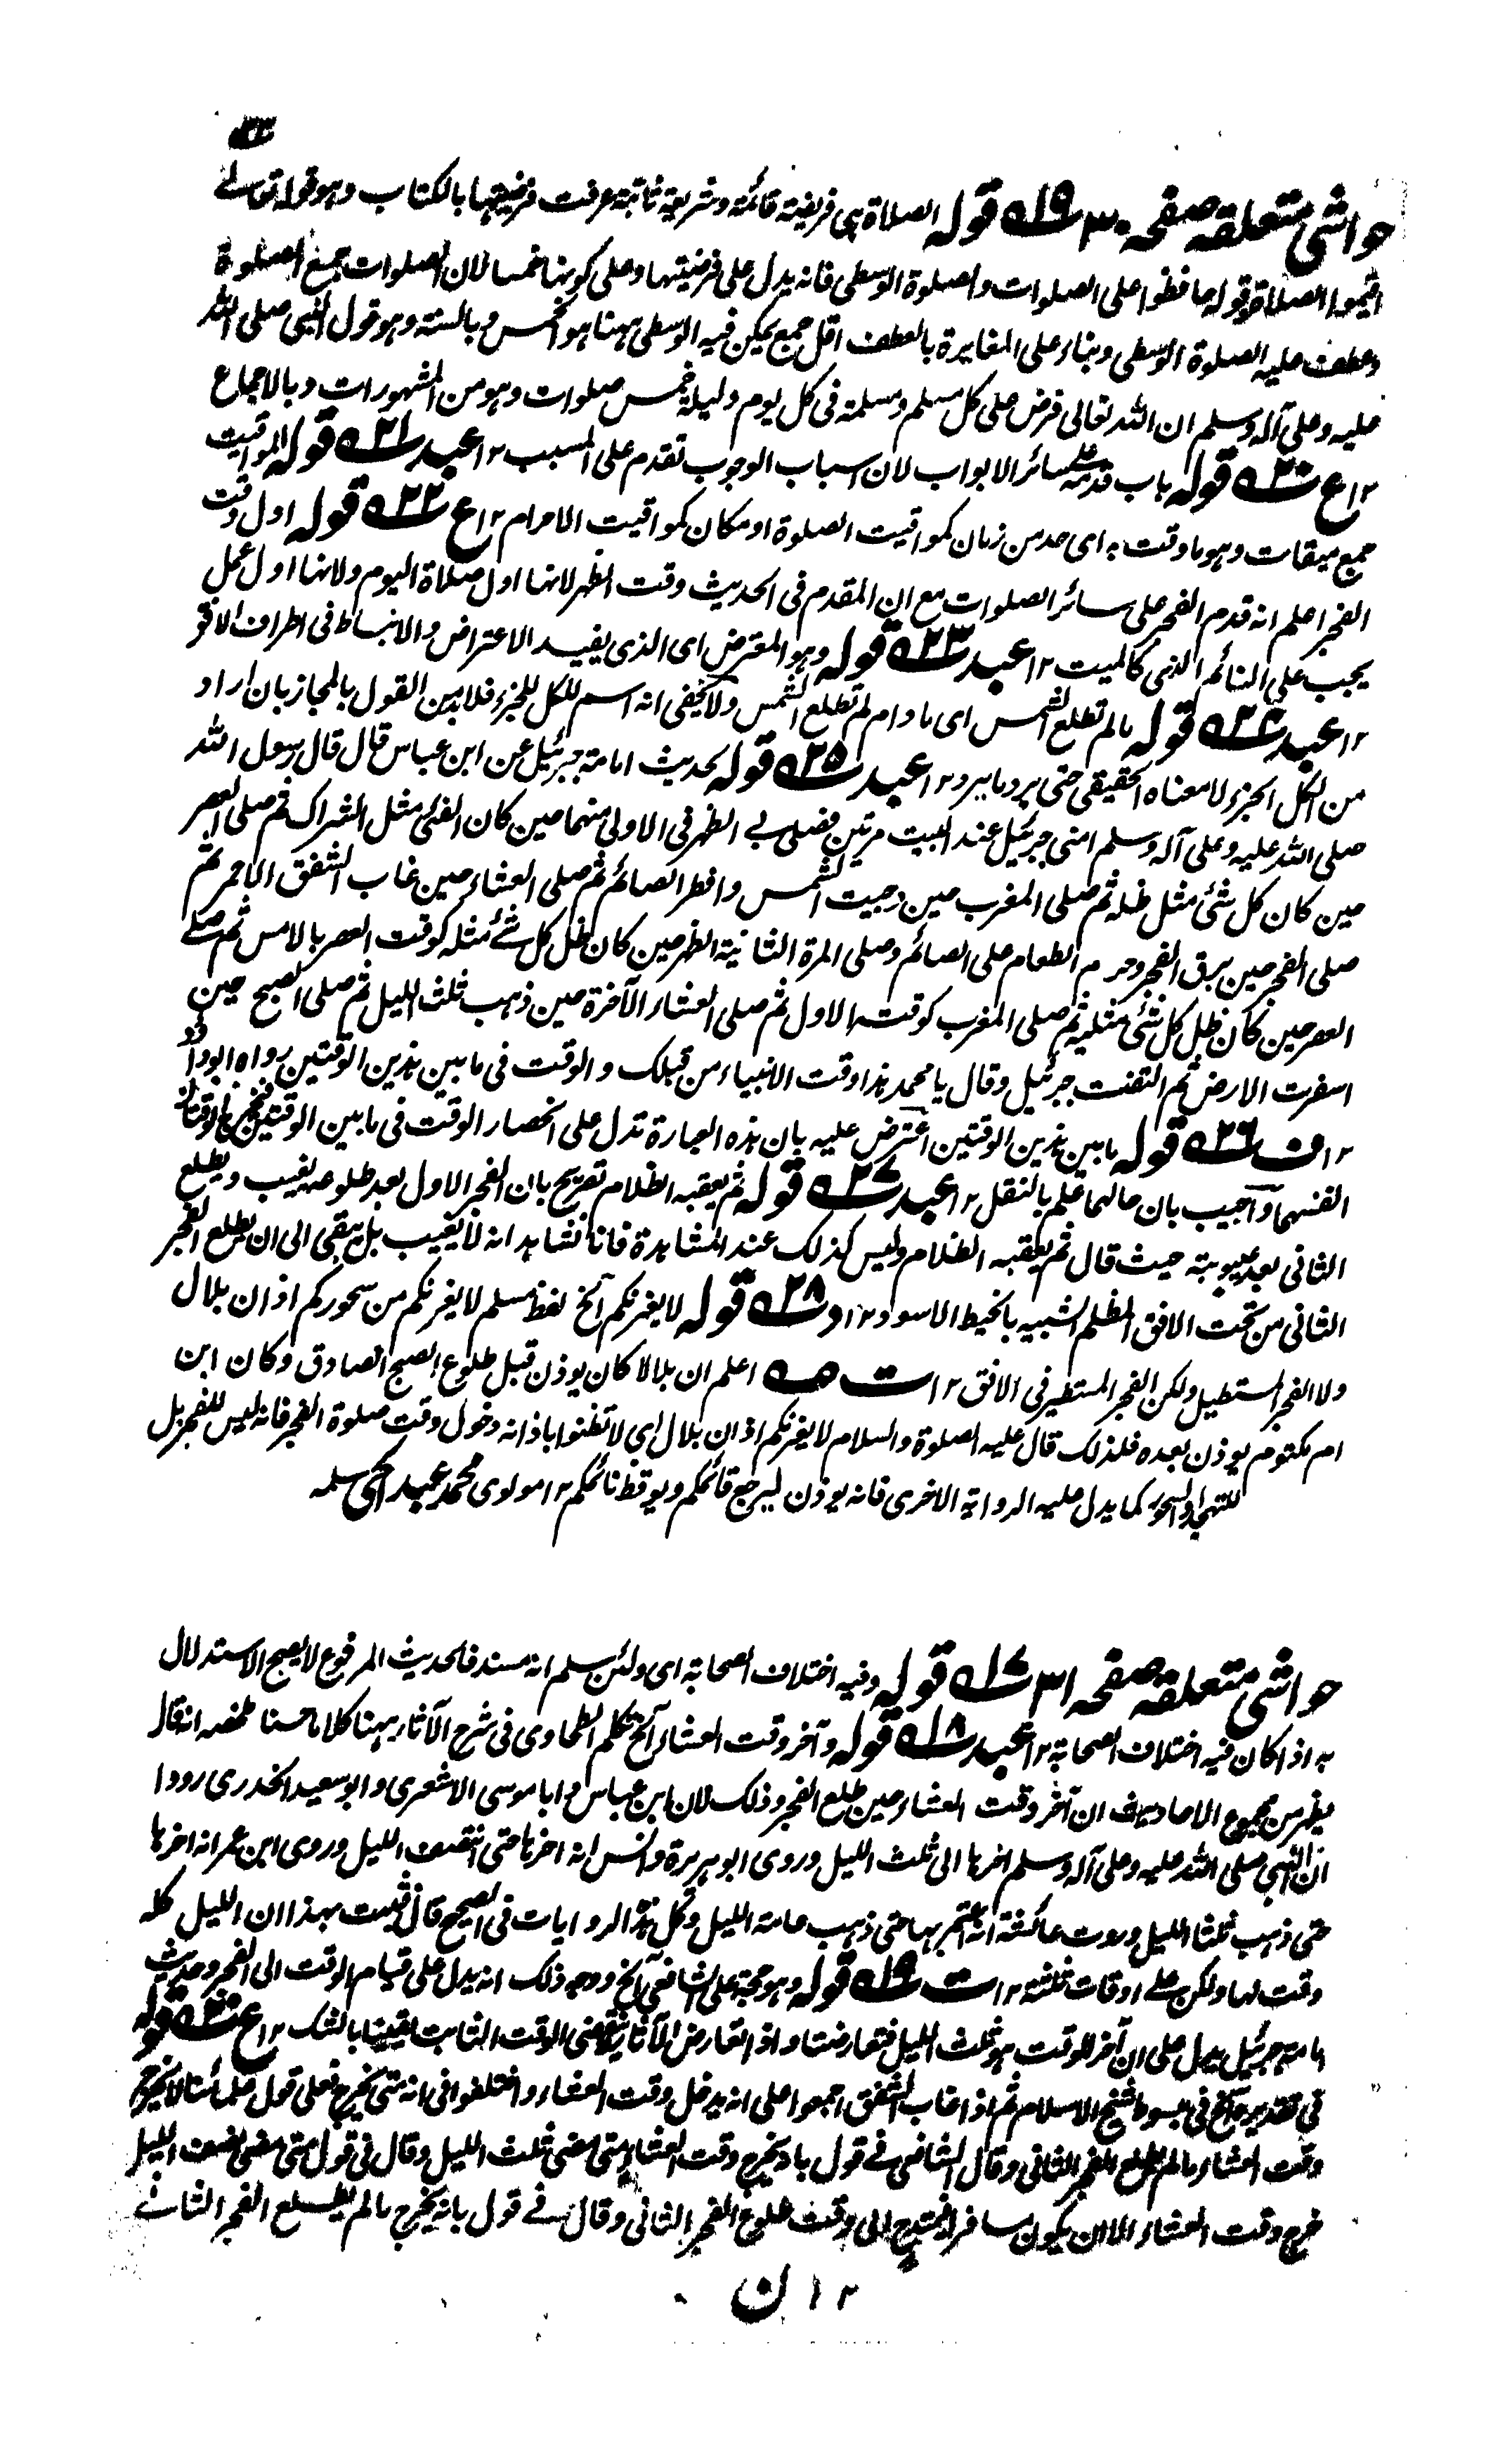 ٣٣
حواشي متعلقه صفحه ٣٠ ١٩ قوله الصلاة هي فريضة قائمة وشريعة ثابتة عرفت فرضيتها بالكتاب وهو قوله تعالى
اقيموا الصلاة وقوله حافظوا على الصلوات والصلوة الوسطى فانه يدل على فرضيتها وعلى كونها خمسا لان الصلوات جمع الصلوة
وعطف عليه الصلوة الوسطى وبناء على المغايرة بالعطف اقل جمع يمكن فيه الوسطى ههنا هو الخمس وبالسنة وهو قول النبي صلى الله
عليه وعلى آله وسلم ان الله تعالى فرض على كل مسلم ومسلمة في كل يوم وليلة خمس صلوات وهو من المشهورات وبالاجماع
١٢ ع ٢٠ قوله باب قدمه على سائر الابواب لان اسباب الوجوب تقدم على المسبب ١٢ عبد ٢١ قوله المواقيت
جمع ميقات وهو ما وقت به اى حد من زمان كمواقيت الصلوة او مكان كمواقيت الاحرام ١٢ ع ٢٢ قوله اول وقت
الفجر اعلم انه قدم الفجر على سائر الصلوات مع ان المقدم في الحديث وقت الظهر لانها اول صلاة اليوم ولانها اول عمل
يجب على النائم الذي كالميت ١٢ عبد ٢٣ قوله وهو المعترض اى الذي يفيد الاعتراض والانبساط في اطراف الافق
١٢ عبد ٢٤ قوله ما لم تطلع الشمس اى ما دام لم تطلع الشمس ولا يخفى انه اسم للكل للجزء فلابد من القول بالمجاز بان اراد
من الكل الجزء لا معناه الحقيقي حتى يرد ما يرد ١٢ عبد ٢٥ قوله لحديث امامة جبرئيل عن ابن عباس قال قال رسول الله
صلى الله عليه وعلى آله وسلم امني جبرئيل عند البيت مرتين فصلى بي الظهر في الاولى منهما حين كان الفئ مثل الشراك ثم صلى العصر
حين كان كل شئ مثل ظله ثم صلى المغرب حين وجبت الشمس وافطر الصائم ثم صلى العشاء حين غاب الشفق الاحمر ثم
صلى الفجر حين برق الفجر وحرم الطعام على الصائم وصلى المرة الثانية الظهر حين كان ظل كل شئ مثله كوقت العصر بالامس ثم صلى
العصر حين كان ظل كل شئ مثليه ثم صلى المغرب كوقته الاول ثم صلى العشاء الآخرة حين ذهب ثلث الليل ثم صلى الصبح حين
اسفرت الارض ثم التفت جبرئيل وقال يا محمد هذا وقت الانبياء من قبلك والوقت في ما بين هذين الوقتين رواه ابو داؤد
١٢ ف ٢٦ قوله ما بين هذين الوقتين اعترض عليه بان هذه العبارة تدل على انحصار الوقت في ما بين الوقتين فيخرج الوقتان
انفسهما واجيب بان حالهما علم بالنقل ١٢ عبد ٢٧ قوله ثم يعقبه الظلام تصريح بان الفجر الاول بعد طلوعه يغيب ويطلع
الثاني بعد غيبوبته حيث قال ثم يعقبه الظلام وليس كذلك عند المشاهدة فانا نشاهد انه لا يغيب بل يبقى الى ان يطلع الفجر
الثاني من تحت الافق المظلم الشبيه بالخيط الاسود ١٢ د ٢٨ قوله لا يغرنكم آلخ لفظ مسلم لا يغرنكم من سحوركم اذان بلال
ولا الفجر المستطيل ولكن الفجر المستطير في الافق ١٢ ت اعلم ان بلالا كان يوذن قبل طلوع الصبح الصادق وكان ابن
ام مكتوم يوذن بعده فلذلك قال عليه الصلوة والسلام لا يغرنكم اذان بلال اي لا تظنوا باذانه دخول وقت صلوة الفجر فانه ليس للفجر بل
للتهجد والسحور كما يدل عليه الرواية الاخرى فانه يوذن ليرجع قائمكم ويوقظ نائمكم ١٢ مولوى محمد عبد الحى سلمه
حواشي متعلقه صفحه ٣١ ١٧ قوله وفيه اختلاف الصحابة اى ولئن سلم انه مسند فالحديث المرفوع لا يصح الاستدلال
به اذا كان فيه اختلاف الصحابة ١٢ عبد ١٨ قوله وآخر وقت العشاء آلخ تكلم الطحاوى في شرح الآثار ههنا كلاما حسنا ملخصه انه قال
يظهر من مجموع الاحاديث ان آخر وقت العشاء حين طلع الفجر وذلك لان ابن عباس و ابا موسى الاشعري و ابو سعيد الخدري رووا
ان النبي صلى الله عليه وعلى آله وسلم اخرها الى ثلث الليل وروى ابو هريرة وانس انه اخرها حتى انتصف الليل وروى ابن عمر انه اخرها
حتى ذهب ثلثا الليل وروت عائشة انه اعتم بها حتى ذهب عامة الليل وكل هذه الروايات في الصحيح قال فثبت بهذا ان الليل كله
وقت لها ولكن على اوقات ثلثة ١٢ ت ١٩ قوله وهو حجة على الشافعى آلخ ووجه ذلك انه يدل على قيام الوقت الى الفجر وحديث
امامة جبرئيل يدل على ان آخر الوقت هو ثلث الليل فتعارضتا واذا تعارض الآثار لا ينقضى الوقت الثابت يقينا بالشك ١٢ ع ٢٠ قوله
في تقدير آلخ في مبسوط شيخ الاسلام ثم اذا غاب الشفق اجمعوا على انه يدخل وقت العشاء واختلفوا في انه متى يخرج فعلى قول علمائنا لا يخرج
وقت العشاء ما لم يطلع الفجر الثاني وقال الشافعى في قول بانه يخرج وقت العشاء متى مضى ثلث الليل وقال في قول متى مضى نصف الليل
خرج وقت العشاء الا ان يكون مسافرا الى وقت طلوع الفجر الثاني وقال في قول بانه يخرج ما لم يطلع الفجر الثاني
١٢ ن